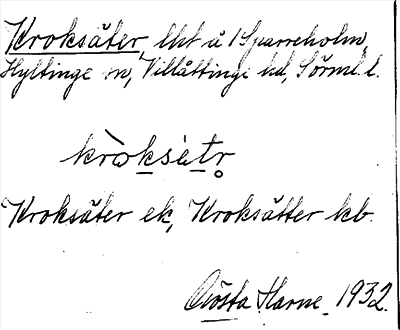 Kroksäter, lht å 1 Sparreholm,
Hyltinge sn, Villåttinge hd, Sörml. l.
kròksètr̥
Kroksäter ek, Kroksätter kb.
Gösta Harne 1932.